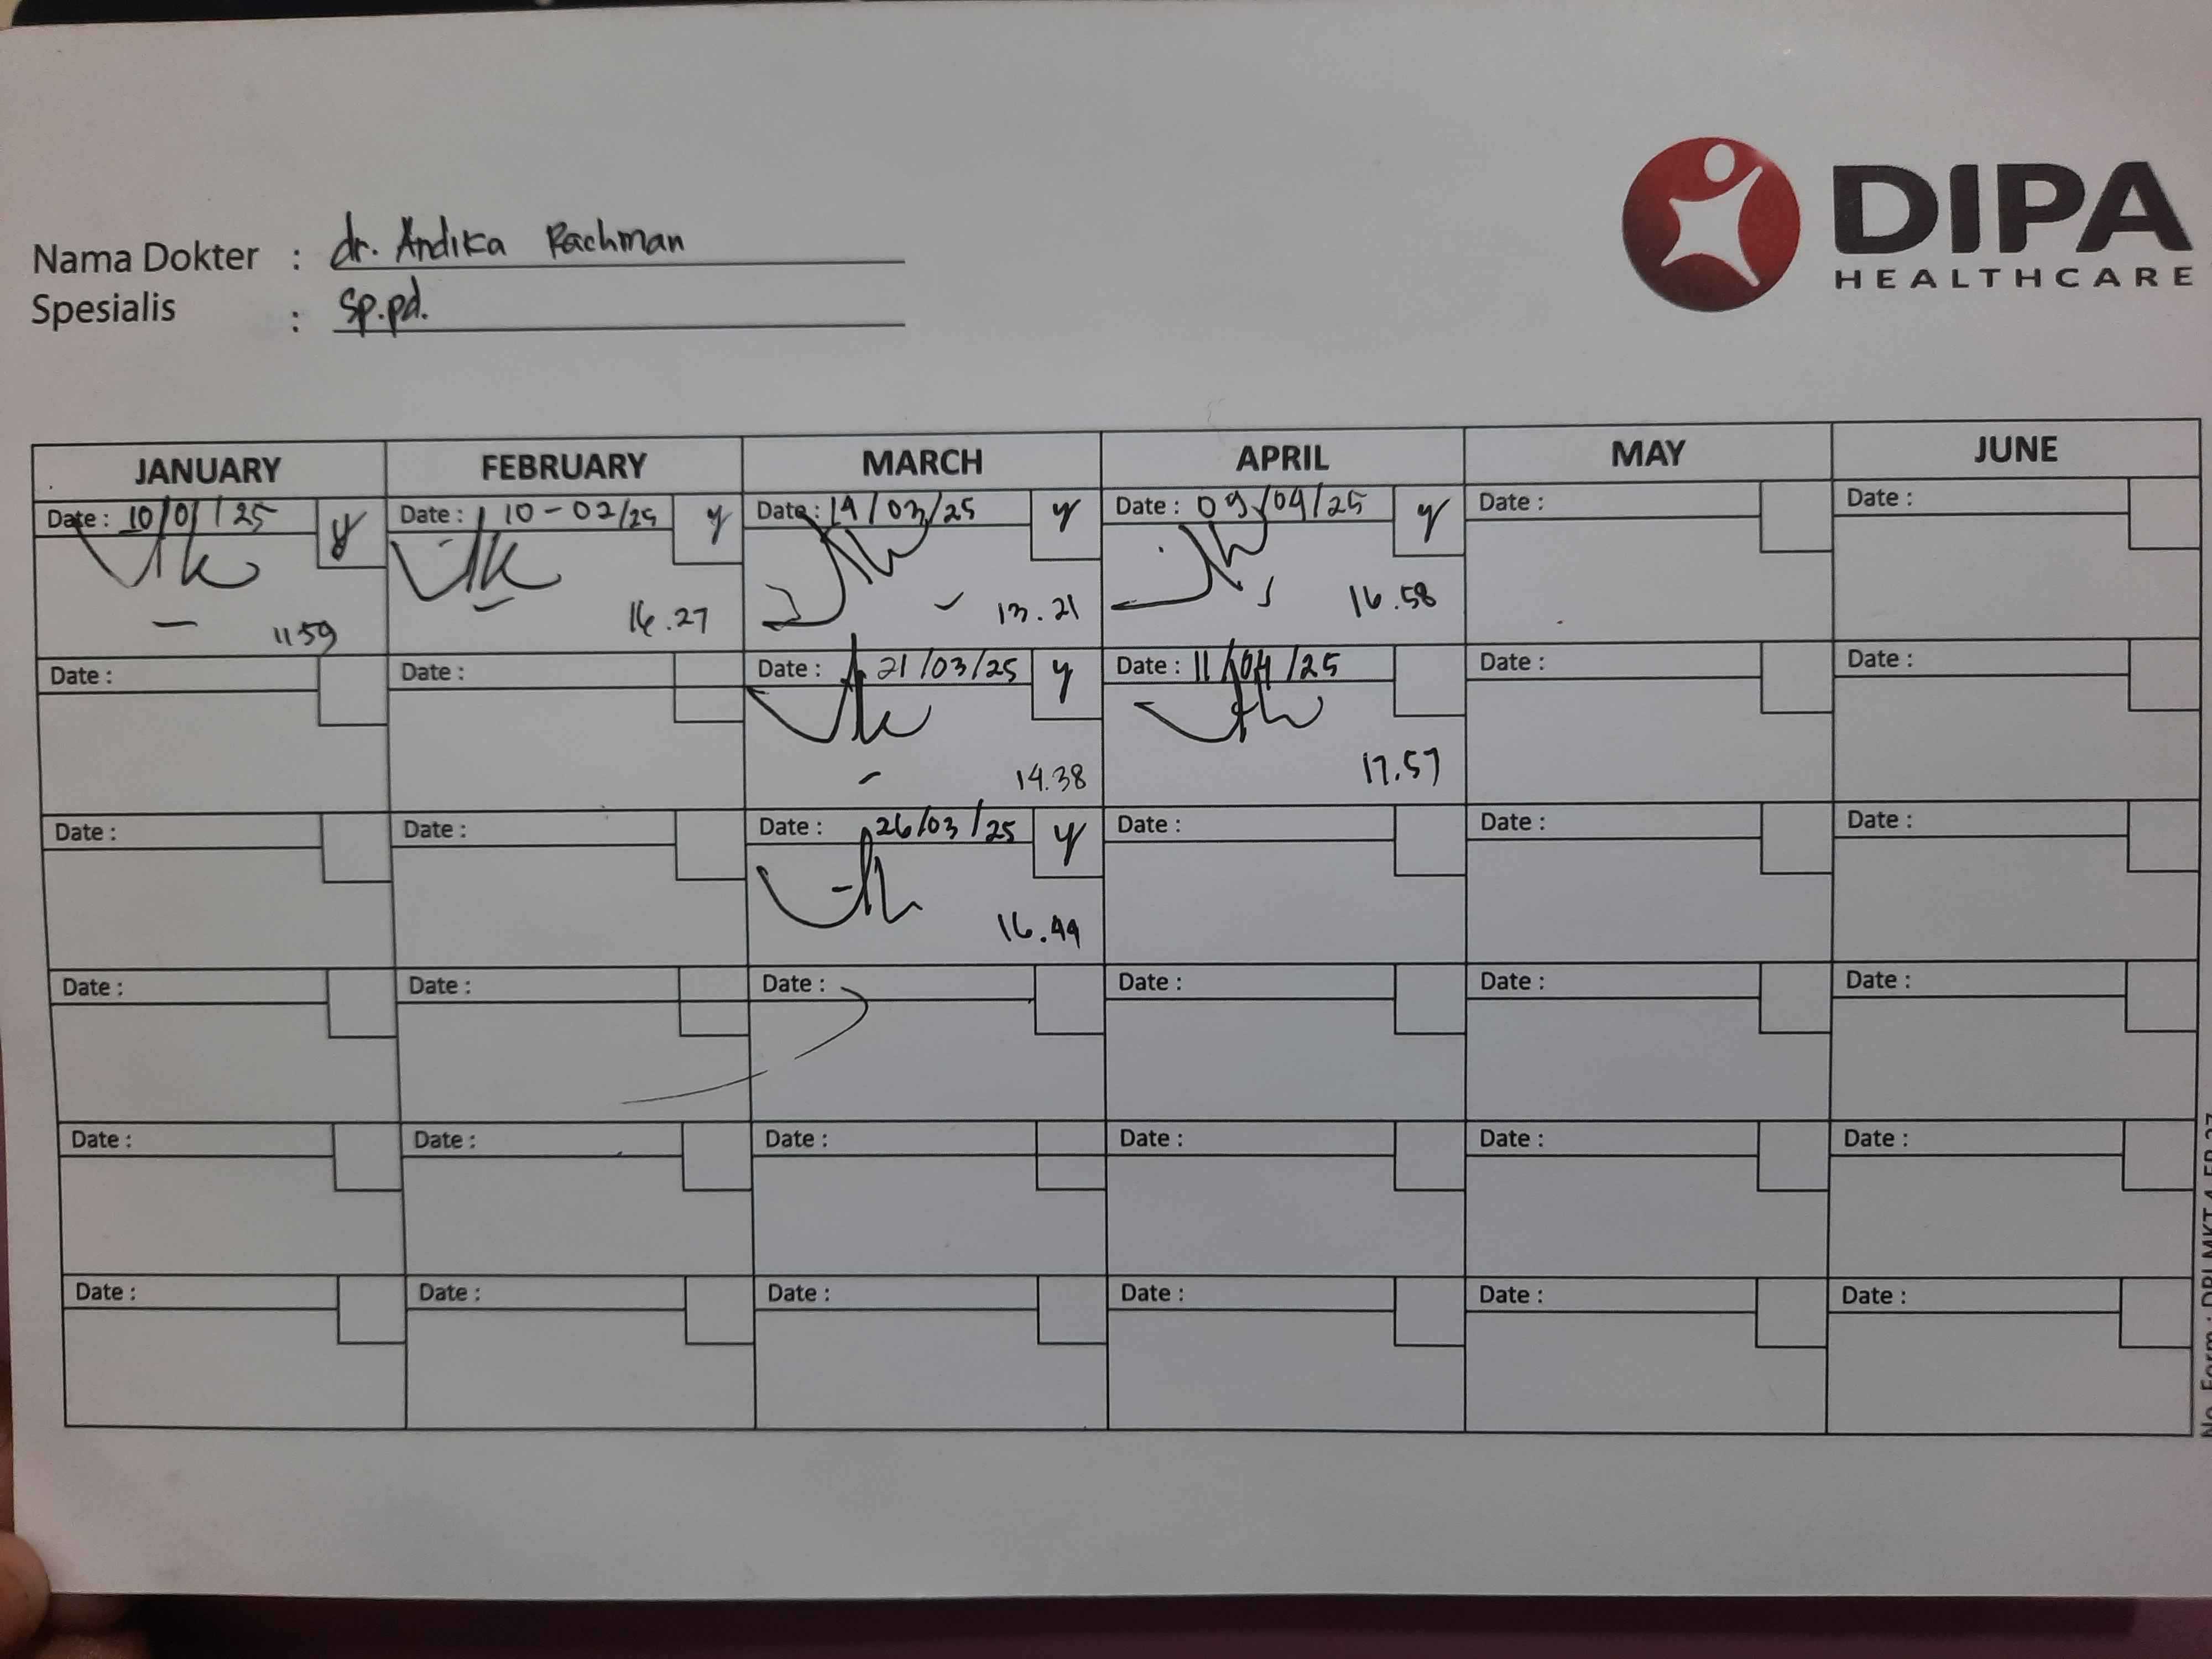 DIPA
HEALTHCARE
Nama Dokter : dr. Andika Rachman
Spesialis : Sp.pd.
JANUARY FEBRUARY MARCH APRIL MAY JUNE
Date : 10/01/25 y Date : 10-02/25 y Date : 14/03/25 y Date : 09/04/25 y Date : Date :
11.59 16.27 13.21 16.58
Date : Date : Date : 21/03/25 y Date : 11/04/25 Date : Date :
14.38 17.57
Date : Date : Date : 26/03/25 y Date : Date : Date :
16.44
Date : Date : Date : Date : Date : Date :
Date : Date : Date : Date : Date : Date :
Date : Date : Date : Date : Date : Date :